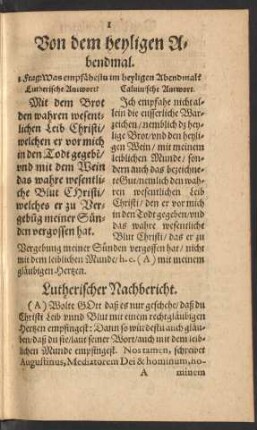 1
Von dem heyligen A-
bendmal.
1. Frag: Was empfähestu im heyligen Abendmal?
Lutherische Antwort
Mit dem Brot
den wahren wesent-
lichen Leib Christi/
welchen er vor mich
in den Todt gegebē/
vnd mit dem Wein
das wahre wesentli-
che Blut Christi/
welches er zu Ver-
gebūg meiner Sün-
den vergossen hat.
Calvinische Antwort.
Jch empfahe nicht al-
lein die eusserliche War-
zeichen/ nemblich dz hey-
lige Brot/vnd den heyli-
gen Wein / mit meinem
leiblichen Munde/ son-
dern auch das bezeichne-
te Gut/nemlich den wah-
ren wesentlichen Leib
Christi/ den er vor mich
in den Todt gegeben/vnd
das wahre wesentliche
Blut Christi/ das er zu
Vergebung meiner Sünden vergossen hat/ nicht
mit dem leiblichen Munde/ &c. (A) mit meinem
gläubigen Hertzen.
Lutherischer Nachbericht.
(A) Wolte GOtt daß es nur geschehe/daß du
Christi Leib vnnd Blut mit einem rechtgläubigen
Hertzen empfingest: Dann so würdestu auch gläu-
ben/daß du sie/laut seiner Wort/auch mit dem leib-
lichen Munde empfingest. Nos tamen, schreibet
Augustinus, Mediatorem Dei & hominum, ho-
A minem